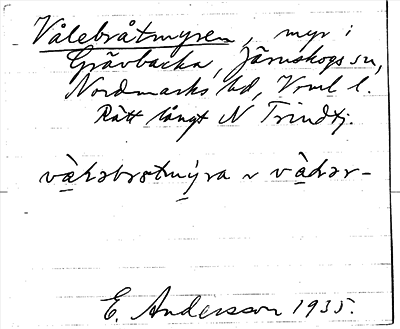 Vålebråtmyren, myr i
Grävbacka, Järnskogs sn,
Nordmarks hd, Vrml l.
Rätt långt N Trindtj.
E. Andersson 1935.